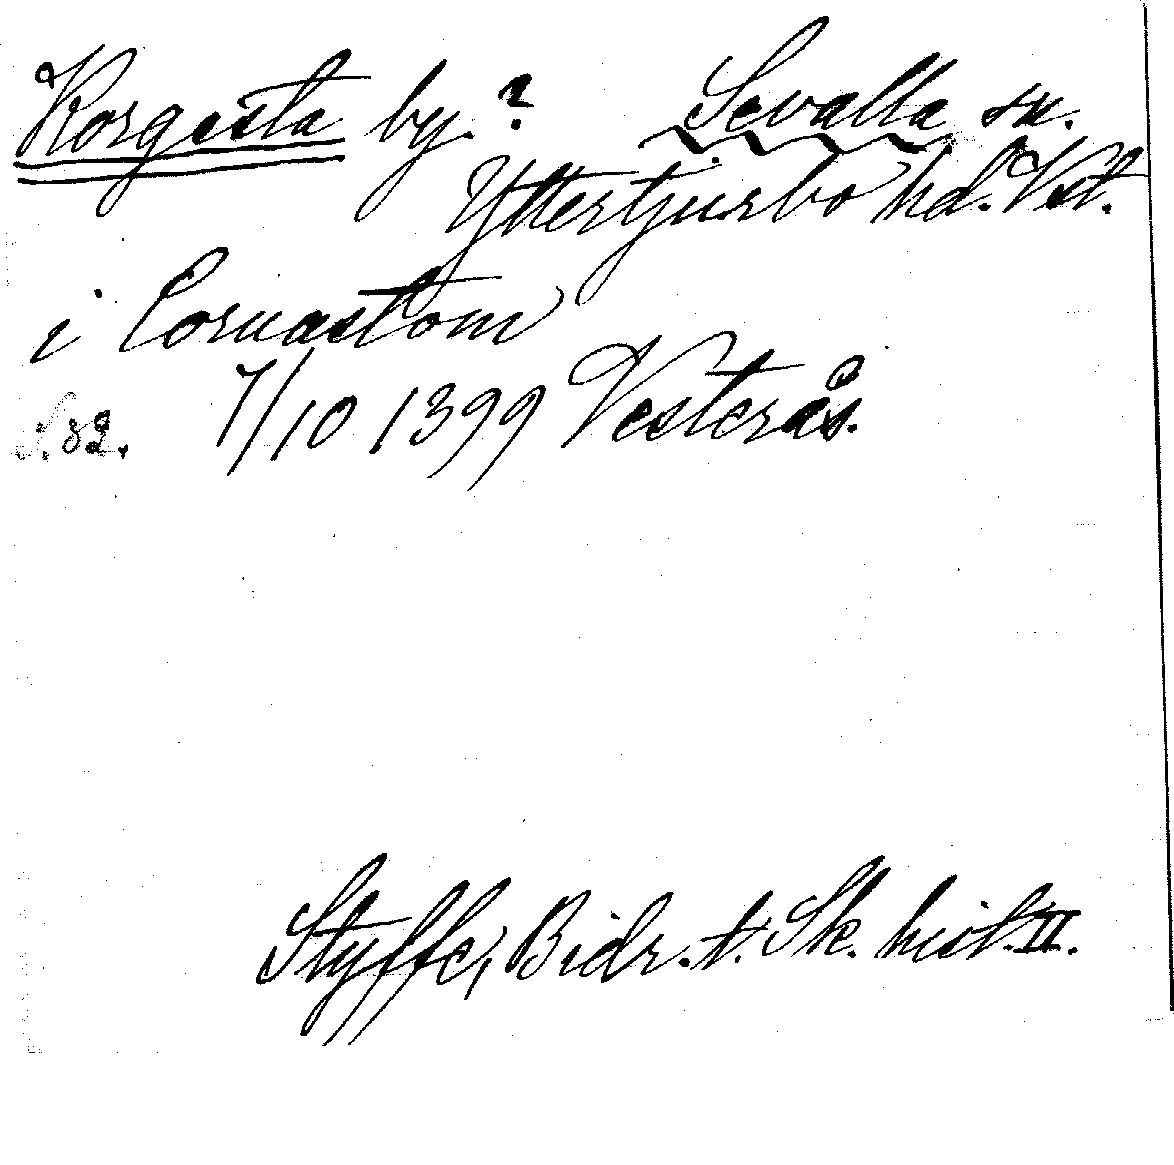 Korgesta by. ? Sevalla sn.
Yttertjurbo hd. Vstl.
i Cornastom
S. 32. 7/10 1399 Vesterås.
Styffe, Bidr. t. Sk. hist. II.